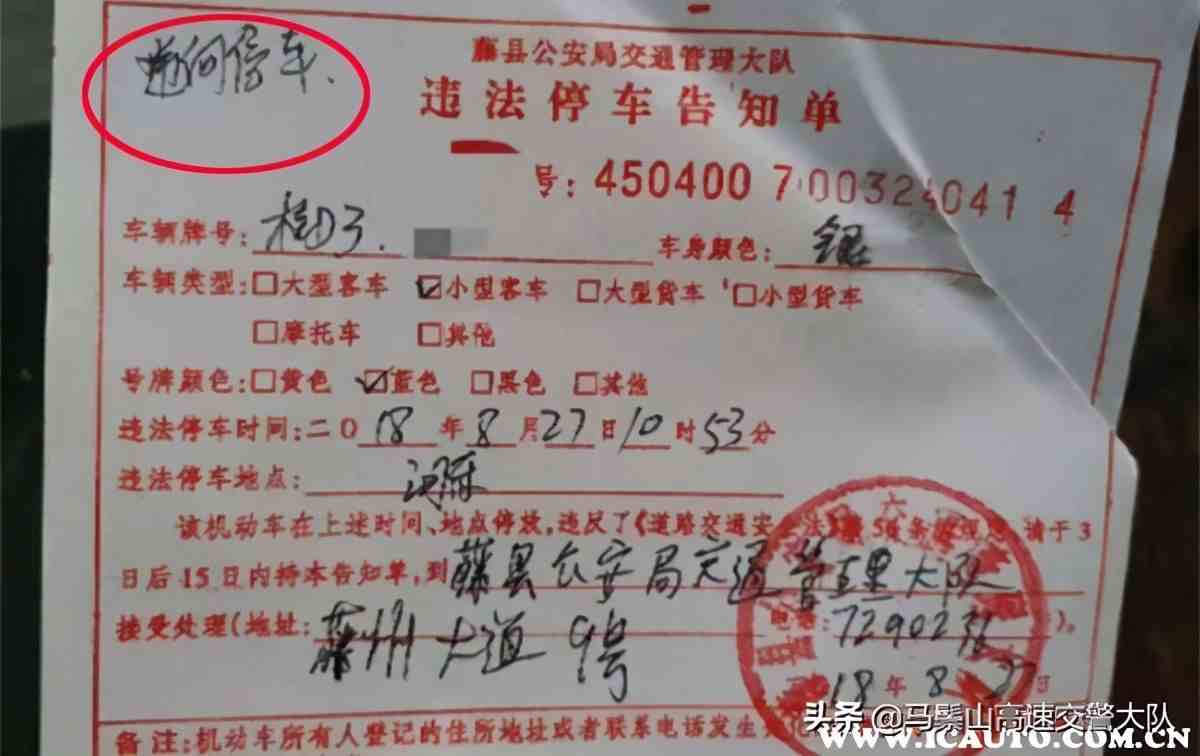 逆向停车、
藤县公安局交通管理大队
违法停车告知单
号: 450400 7 00324041 4
车辆牌号: 桂D3. 车身颜色: 银
车辆类型:□大型客车 ☑小型客车 □大型货车 □小型货车
□摩托车 □其他
号牌颜色:□黄色 ☑蓝色 □黑色 □其他
违法停车时间:二〇18年8月27日10时53分
违法停车地点:
该机动车在上述时间、地点停放,违反了《道路交通安全法》第56条的规定,请于3
日后15日内持本告知单,到藤县公安局交通管理大队
接受处理(地址:藤州大道9号 电话:7290236)。
18年8月27日
备注:机动车所有人登记的住所地址或者联系电话发生变化
头条@马鬃山高速交警大队
WWW.ICAUTO.COM.CN